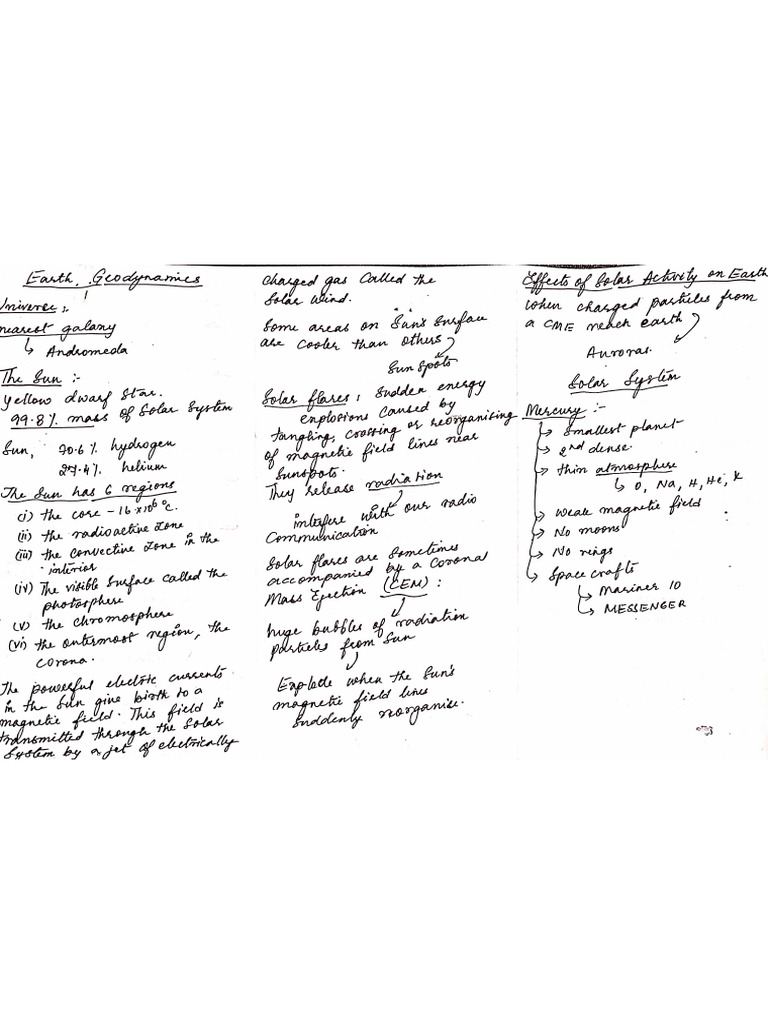 Earth, Geodynamics
Universe :-
nearest galaxy
↳ Andromeda
The Sun :-
Yellow dwarf Star.
99.8% mass of Solar System
Sun, 70.6% hydrogen
27.4% helium
The Sun has 6 regions
(i) the core - 16 × 10⁶ °C.
(ii) the radioactive zone
(iii) the convective zone in the
interior
(iv) The visible Surface called the
photosphere
(v) the chromosphere
(vi) the outermost region, the
corona.
The powerful electric currents
in the Sun give birth to a
magnetic field. This field is
transmitted through the Solar
System by a jet of electrically
Charged gas Called the
Solar Wind.
Some areas on Sun's Surface
are cooler than others
Sun Spots
Solar flares : Sudden energy
explosions caused by
tangling, crossing or reorganising
of magnetic field lines near
Sunspots.
They release radiation
interfere with our radio
Communication
Solar flares are Sometimes
accompanied by a Corona
Mass Ejection (CEM) :
huge bubbles of radiation
particles from Sun
Explode when the Sun's
magnetic field lines
Suddenly reorganise.
Effects of Solar Activity on Earth
When charged particles from
a CME reach earth
Auroras.
Solar System
Mercury :-
↳ Smallest planet
↳ 2nd dense.
↳ thin atmosphere
↳ O, Na, H, He, K
↳ Weak magnetic field
↳ No moons
↳ No rings
↳ Space crafts
↳ Mariner 10
↳ MESSENGER